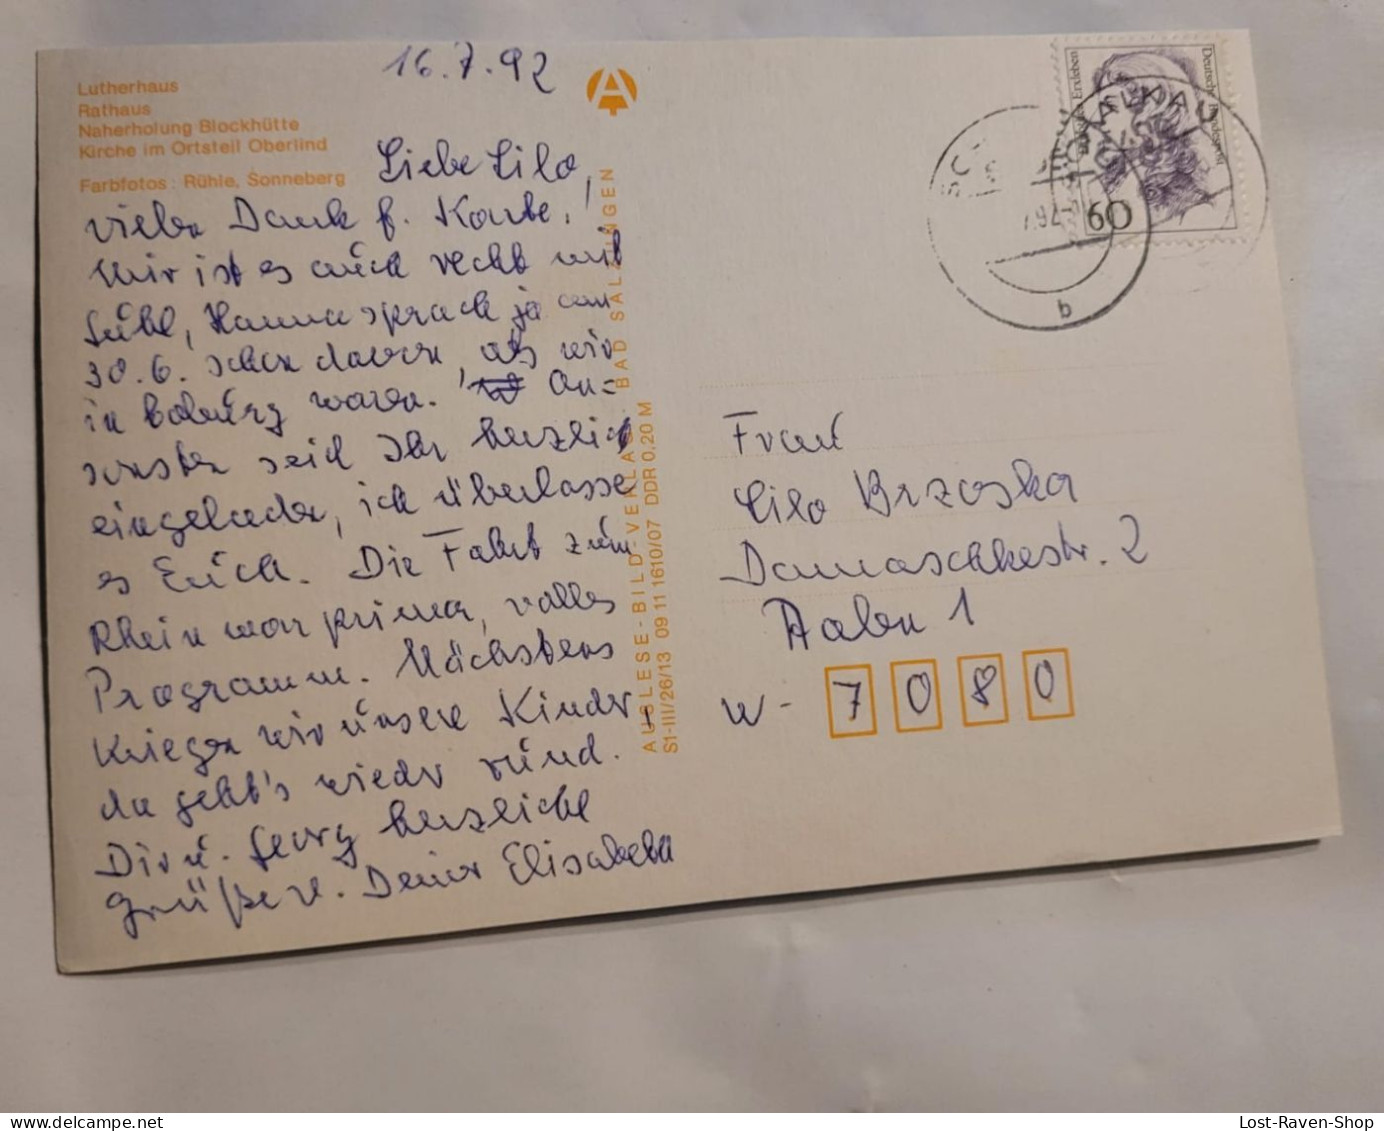 16.7.92
Lutherhaus
Rathaus
Naherholung Blockhütte
Kirche im Ortsteil Oberlind
Farbfotos: Rühle, Sonneberg
Liebe Lilo,
vielen Dank f. Karte!
Mir ist es auch recht mit
Suhl, Hanna sprach ja am
30.6. schon davon, als wir
in Coburg waren. An=
sonsten seid Ihr herzlich
eingeladen, ich überlasse
es Euch. Die Fahrt zum
Rhein war prima, volles
Programm. Nächstens
kriegen wir unsere Kinder,
da geht's wieder rund.
Dir u. Georg herzliche
Grüße v. Deiner Elisabeth
AUSLESE-BILD-VERLAG BAD SALZUNGEN
S1-III/26/13 09 11 1610/07 DDR 0,20 M
Erxleben
Deutsche Bundespost
60
SCHMALKALDEN
b
Frau
Lilo Brzoska
Damaschkestr. 2
Aalen 1
W - 7080
Lost-Raven-Shop